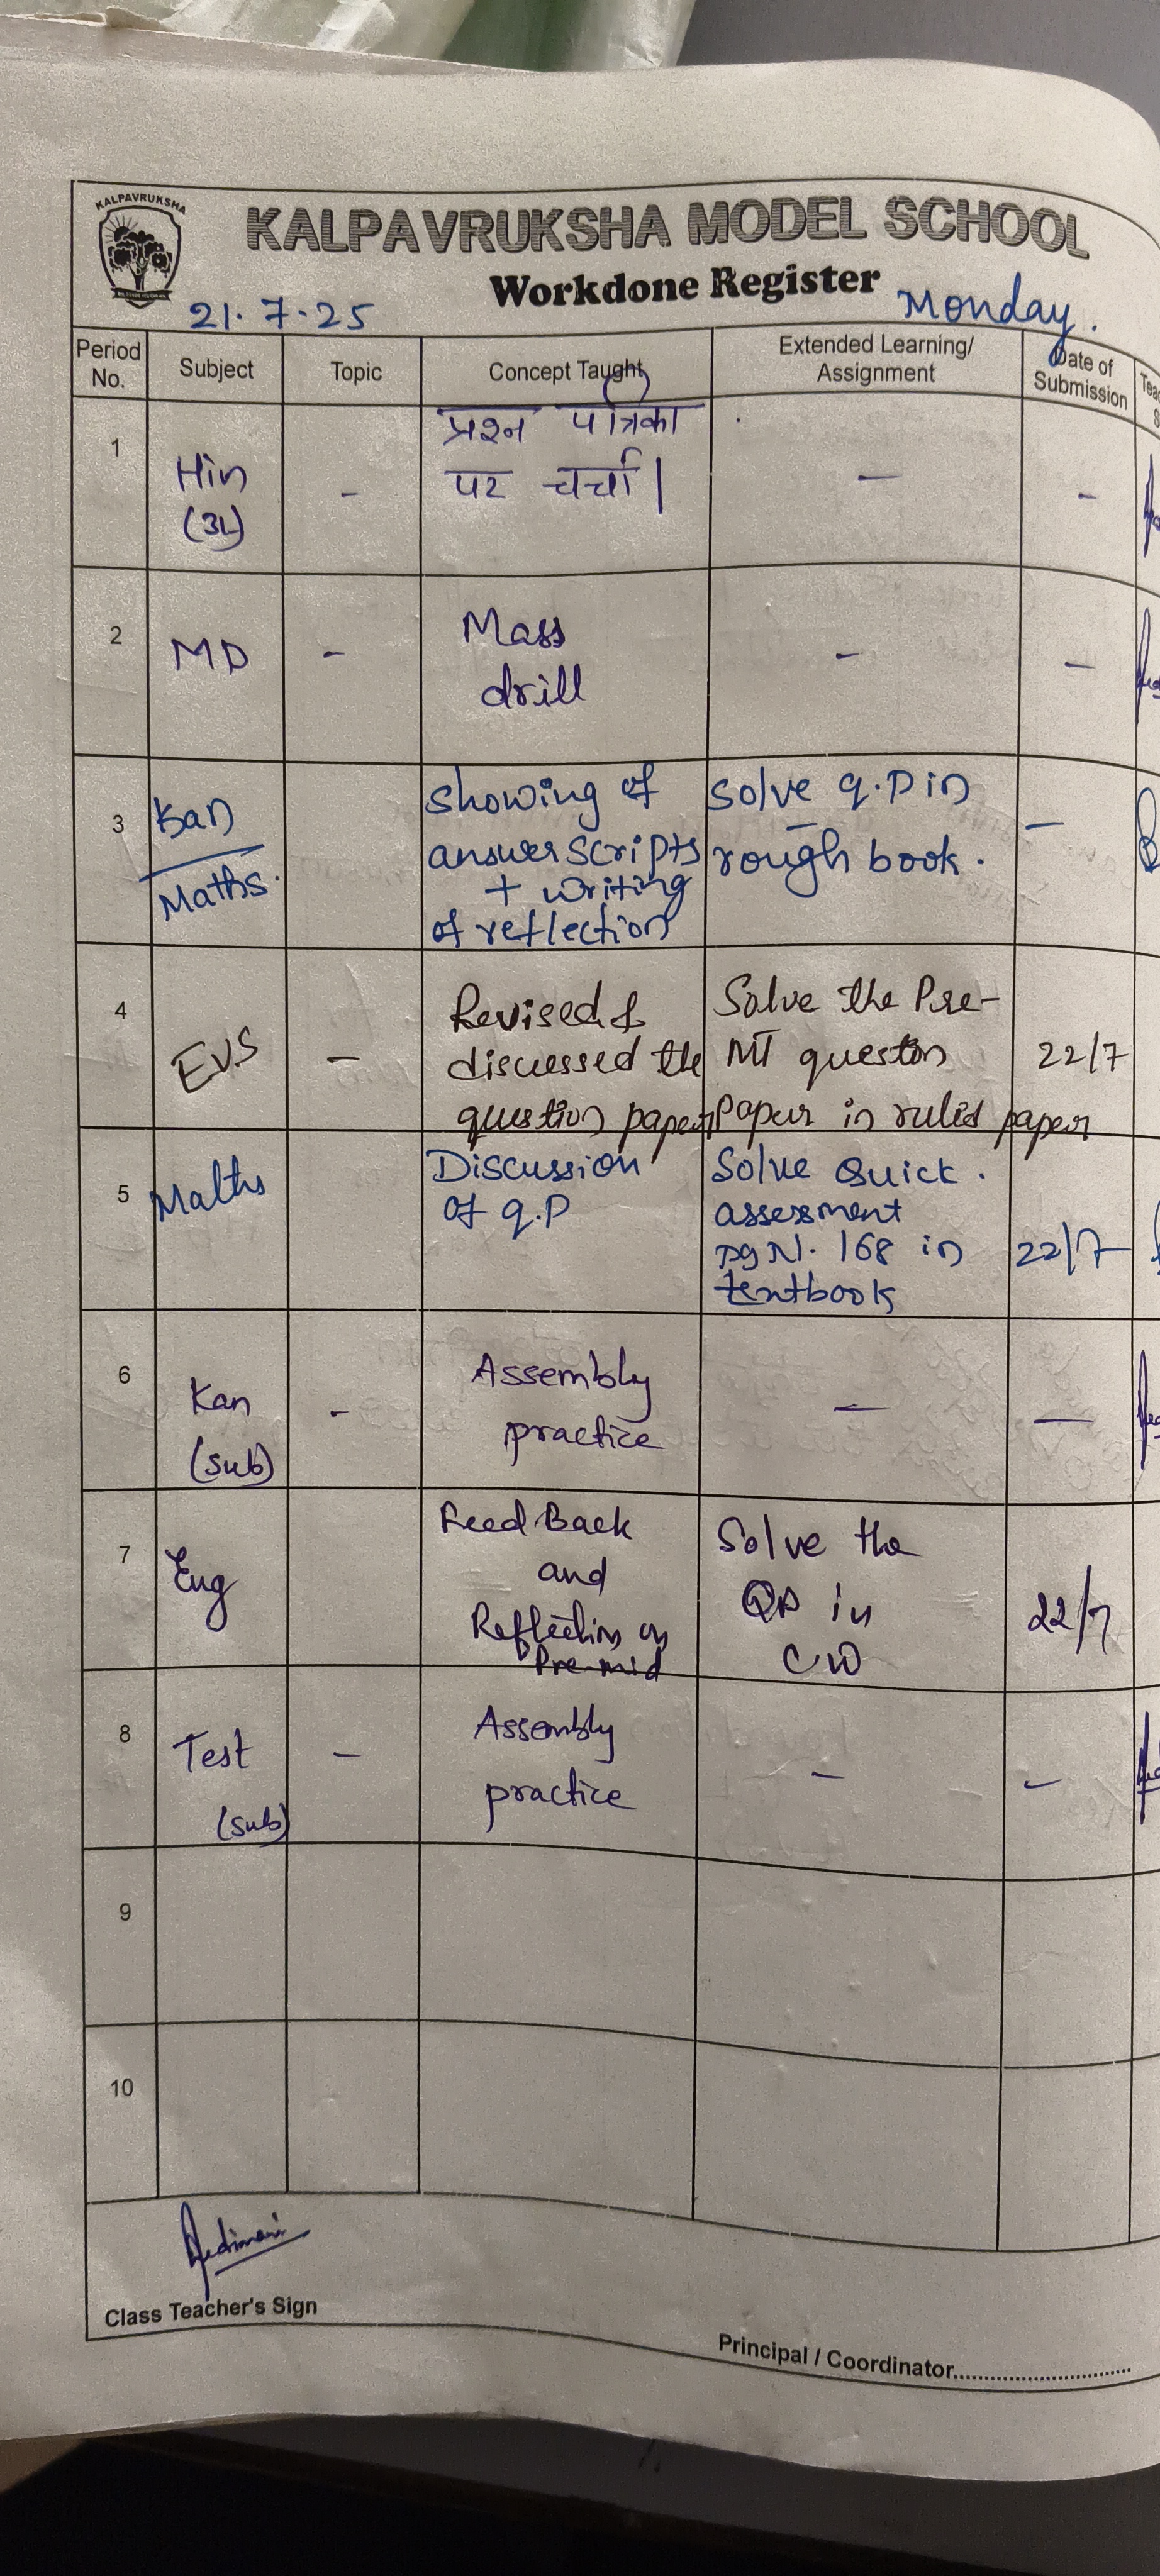 KALPAVRUKSHA
KALPAVRUKSHA MODEL SCHOOL
Workdone Register
21.7.25
Monday.
Period No.
Subject
Topic
Concept Taught
Extended Learning/ Assignment
Date of Submission
1
Hin
(3L)
-
प्रश्न पत्रिका
पर चर्चा।
-
-
2
MD
-
Mass
drill
-
-
3
Kan
Maths.
showing of
answer scripts
+ writing
of reflection
solve q.p in
rough book.
-
4
EVS
-
Revised &
discussed the
question paper
Solve the Pre-
MT queston
Paper in ruled paper
22/7
5
Maths
Discussion
of q.p
Solve Quick.
assessment
pg N. 168 in
textbook
22/7
6
Kan
(sub)
-
Assembly
practice
-
-
7
Eng
Feed Back
and
Reflection on
Pre-mid
Solve the
QP in
CW
22/7
8
Test
(sub)
-
Assembly
practice
-
-
9
10
Class Teacher's Sign
Principal / Coordinator..............................